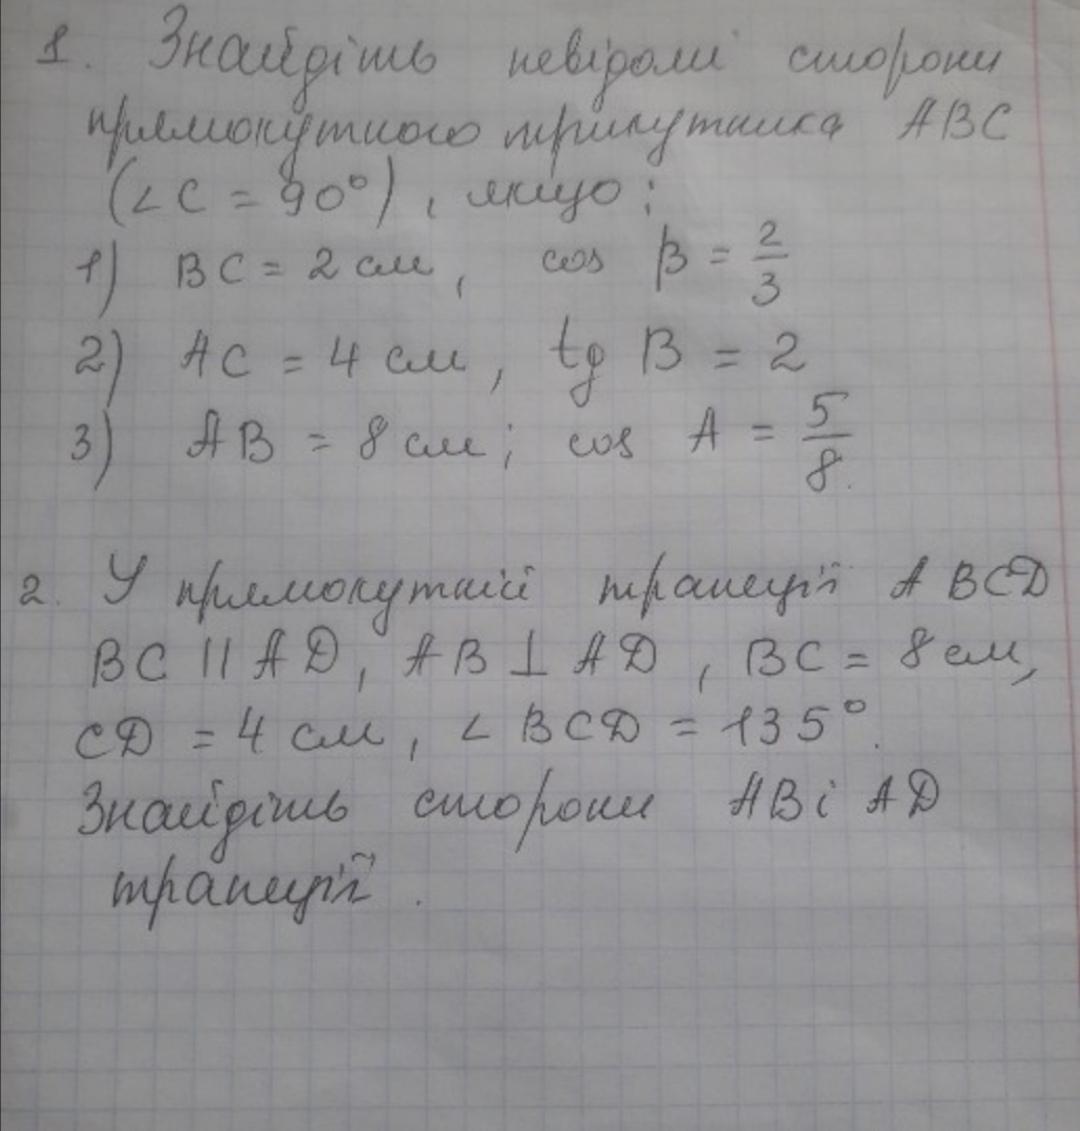 1. Знайдіть невідомі сторони
прямокутного трикутника ABC
(∠C = 90°), якщо:
1) BC = 2 см, cos β = 2/3
2) AC = 4 см, tg B = 2
3) AB = 8 см; cos A = 5/8.
2. У прямокутній трапеції ABCD
BC || AD, AB ⊥ AD, BC = 8 см,
CD = 4 см, ∠ BCD = 135°.
Знайдіть сторони AB і AD
трапеції.